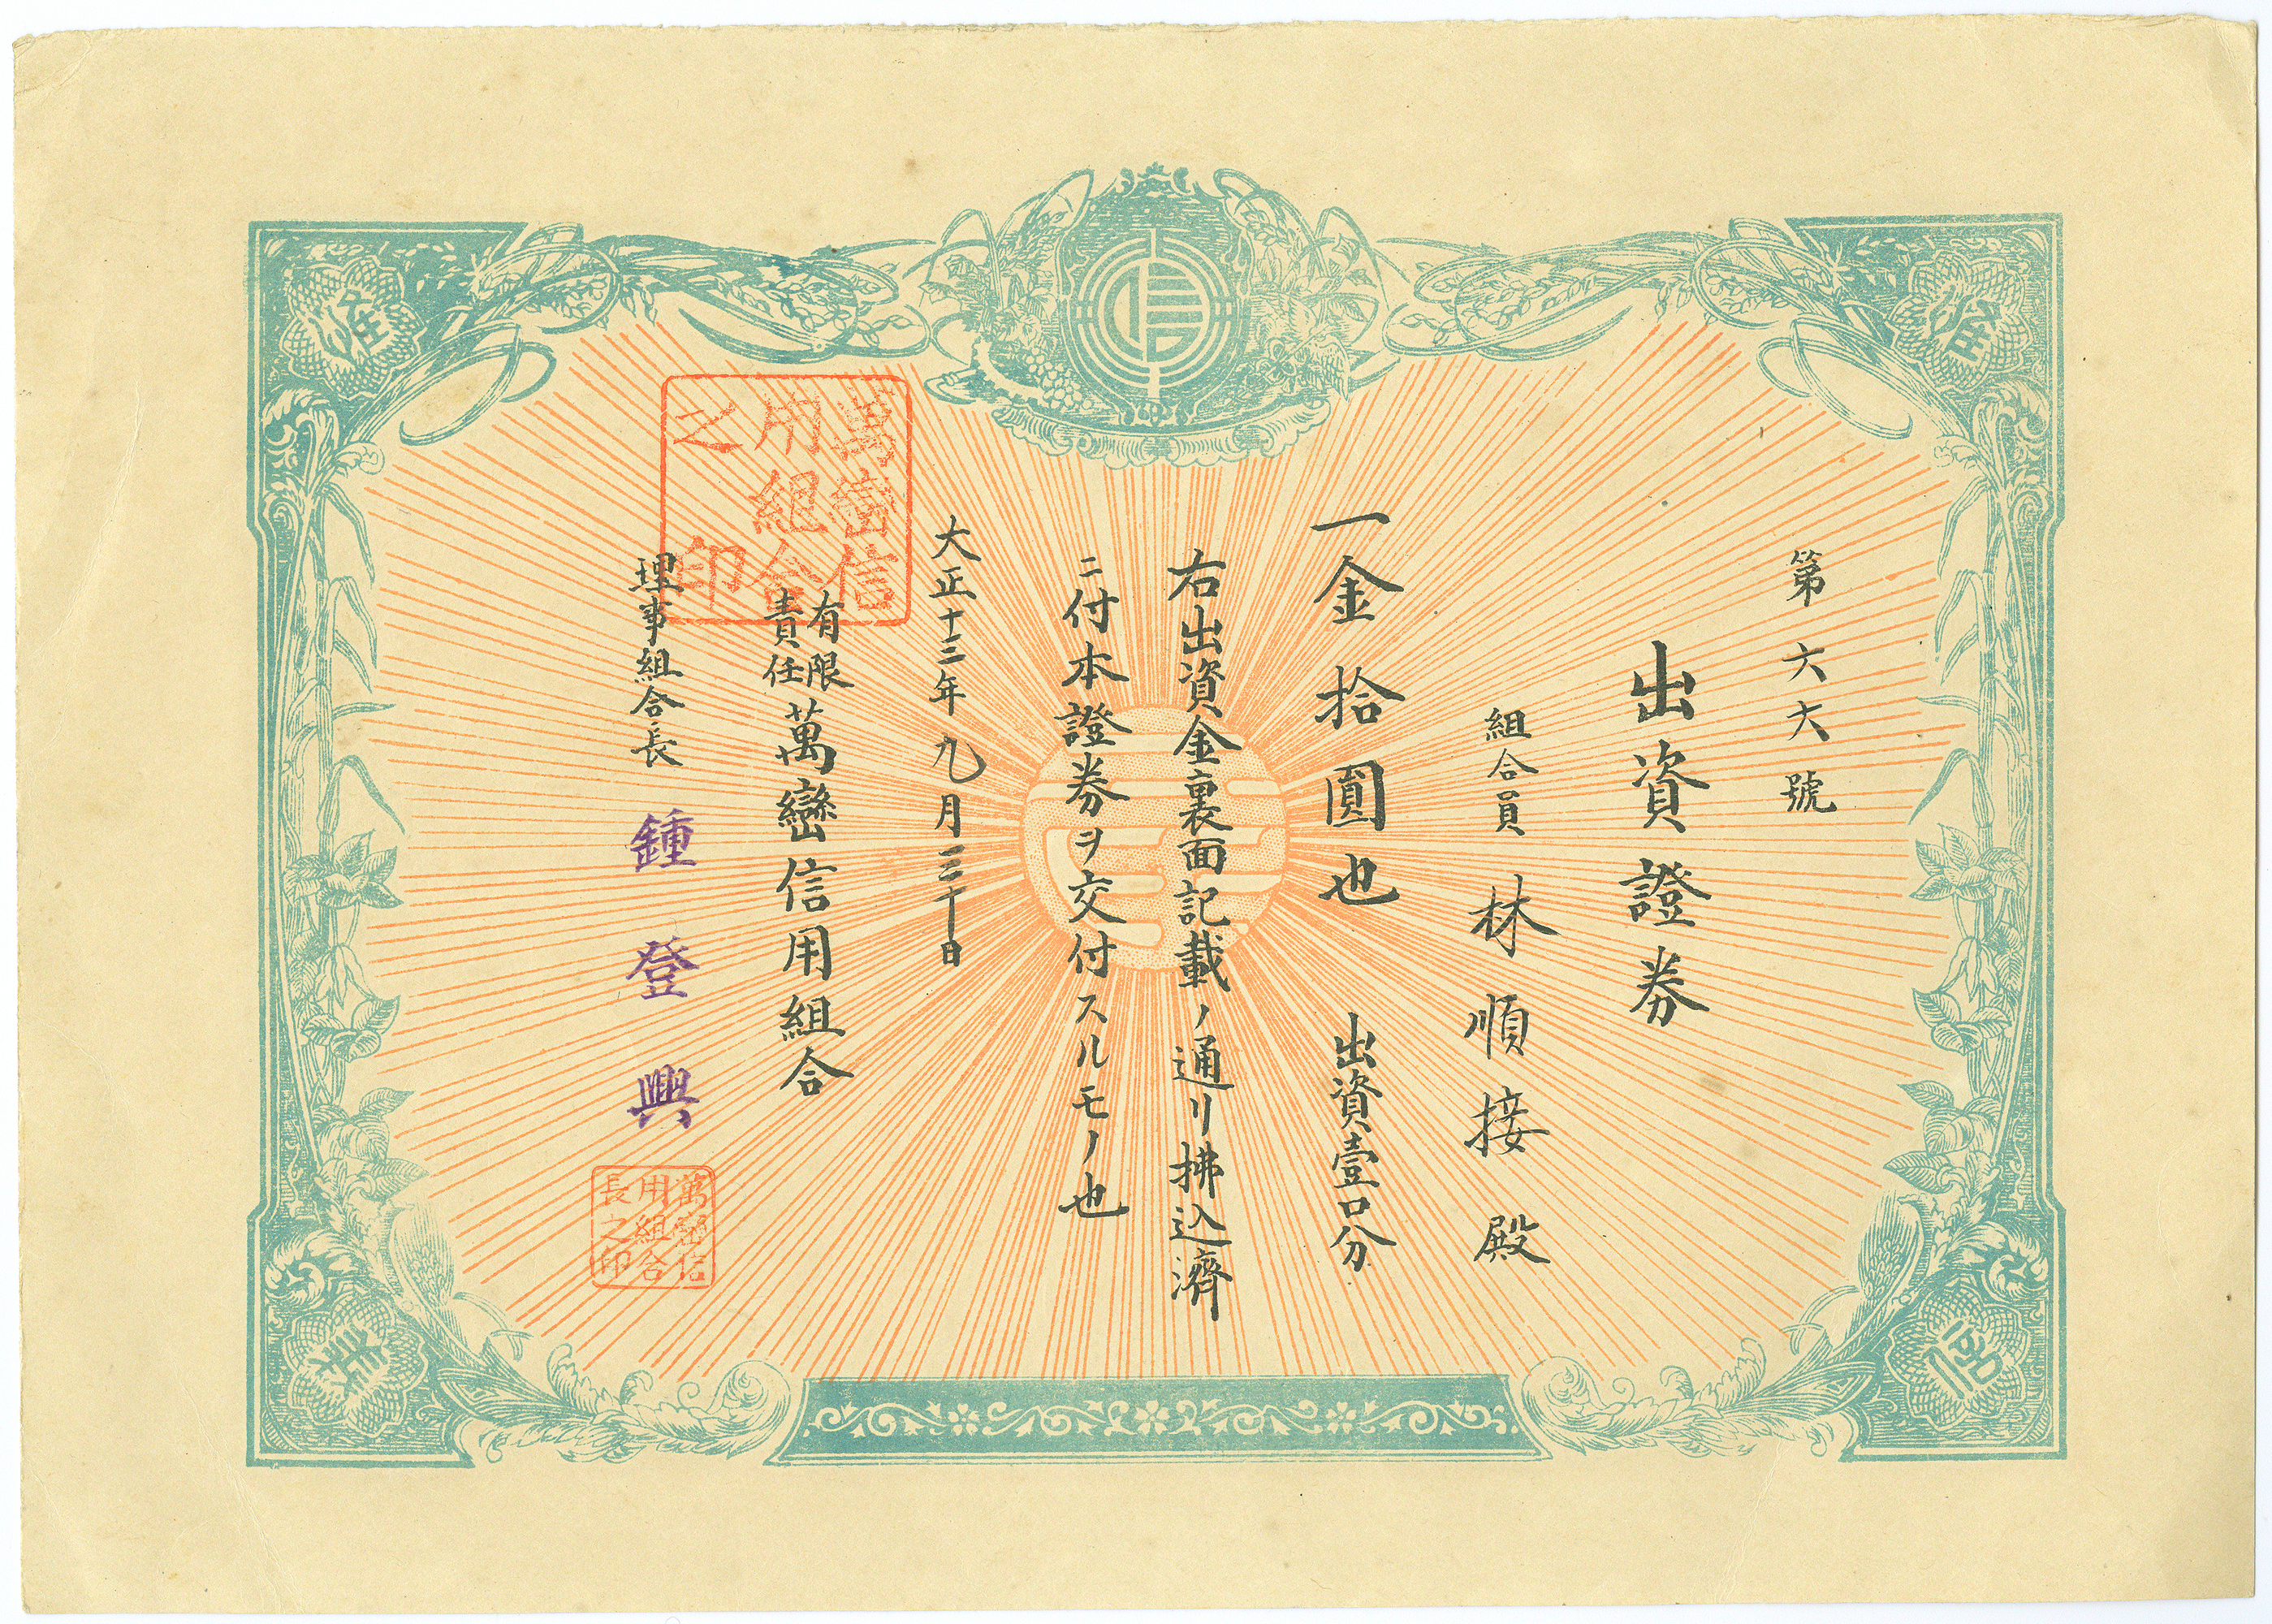 第六六號
出資證券
組合員 林順接殿
一金拾圓也 出資壹口分
右出資金裏面記載ノ通リ拂込濟
ニ付本證券ヲ交付スルモノ也
大正十三年九月三十日
有限責任萬巒信用組合
理事組合長 鍾登興
萬巒信用組合之印
萬巒信用組合長之印